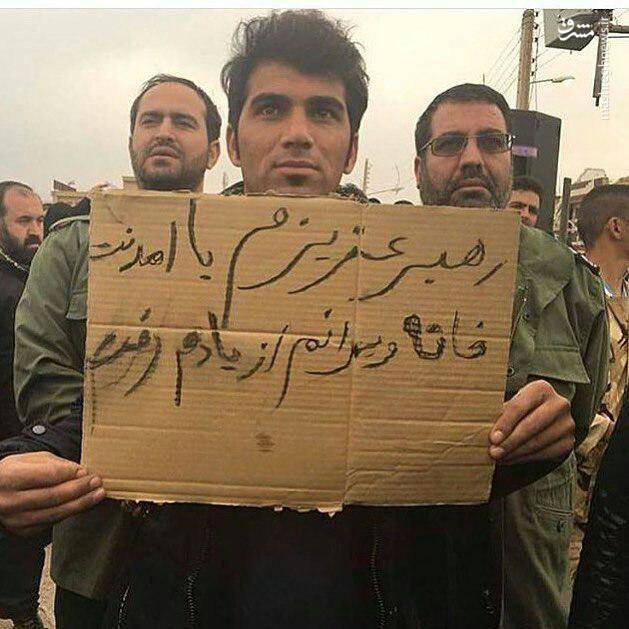 رهبر عزیزم با امدنت
خانه ویرانم از یادم رفت
مشرق
mashreghnews.ir